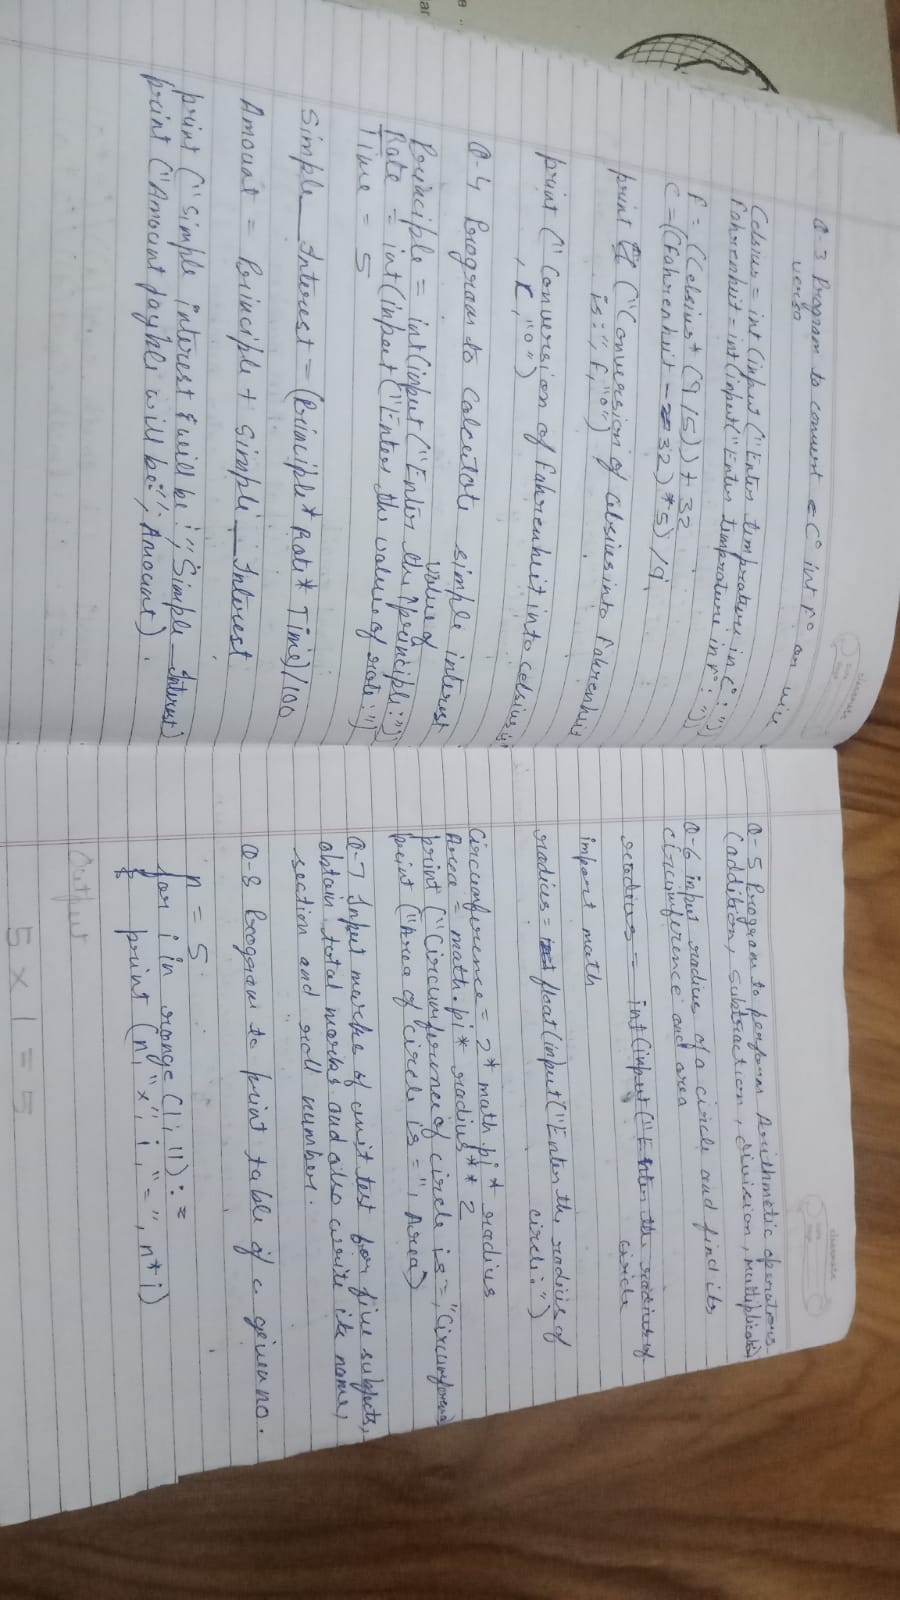 Q-3 Program to convert C° int F° an vice
versa
Celsius = int(input("Enter temprature in C° : "))
Fahrenheit = int(input("Enter temprature in F° : "))
F = (Celsius * (9/5)) + 32
C = ((Fahrenheit - 32) * 5) / 9
print ("Conversion of celsius into Fahrenheit
is:", F, "o")
print ("Conversion of Fahrenheit into celsius
"o")
Q-4 Program to calculate simple interest
value of
Principle = int(input("Enter the principle:"))
Rate = int(input("Enter the value of rate:"))
Time = 5
Simple_Interest = (Principle * Rate * Time)/100
Amount = Principle + Simple_Interest
print ("Simple interest will be:", Simple_Interest)
print ("Amount payble will be:", Amount)
classmate
Q-5 Program to perform Arithmetic operations
(addition, subtraction, division, multiplication)
Q-6 input radius of a circle and find its
circumference and area
radius = int(input("Enter the radius of
circle
import math
radius = float(input("Enter the radius of
circle: ")
Circumference = 2 * math.pi * radius
Area = math.pi * radius ** 2
print ("Circumference of circle is =", Circumference)
print ("Area of circle is =", Area)
Q-7 Input marks of unit test for five subjects,
obtain total marks and also write its name,
section and roll number.
Q-8 Program to print table of a given no.
n = 5
for i in range (1, 11):
print (n, "x", i, "=", n*i)
Output
5 x 1 = 5
classmate